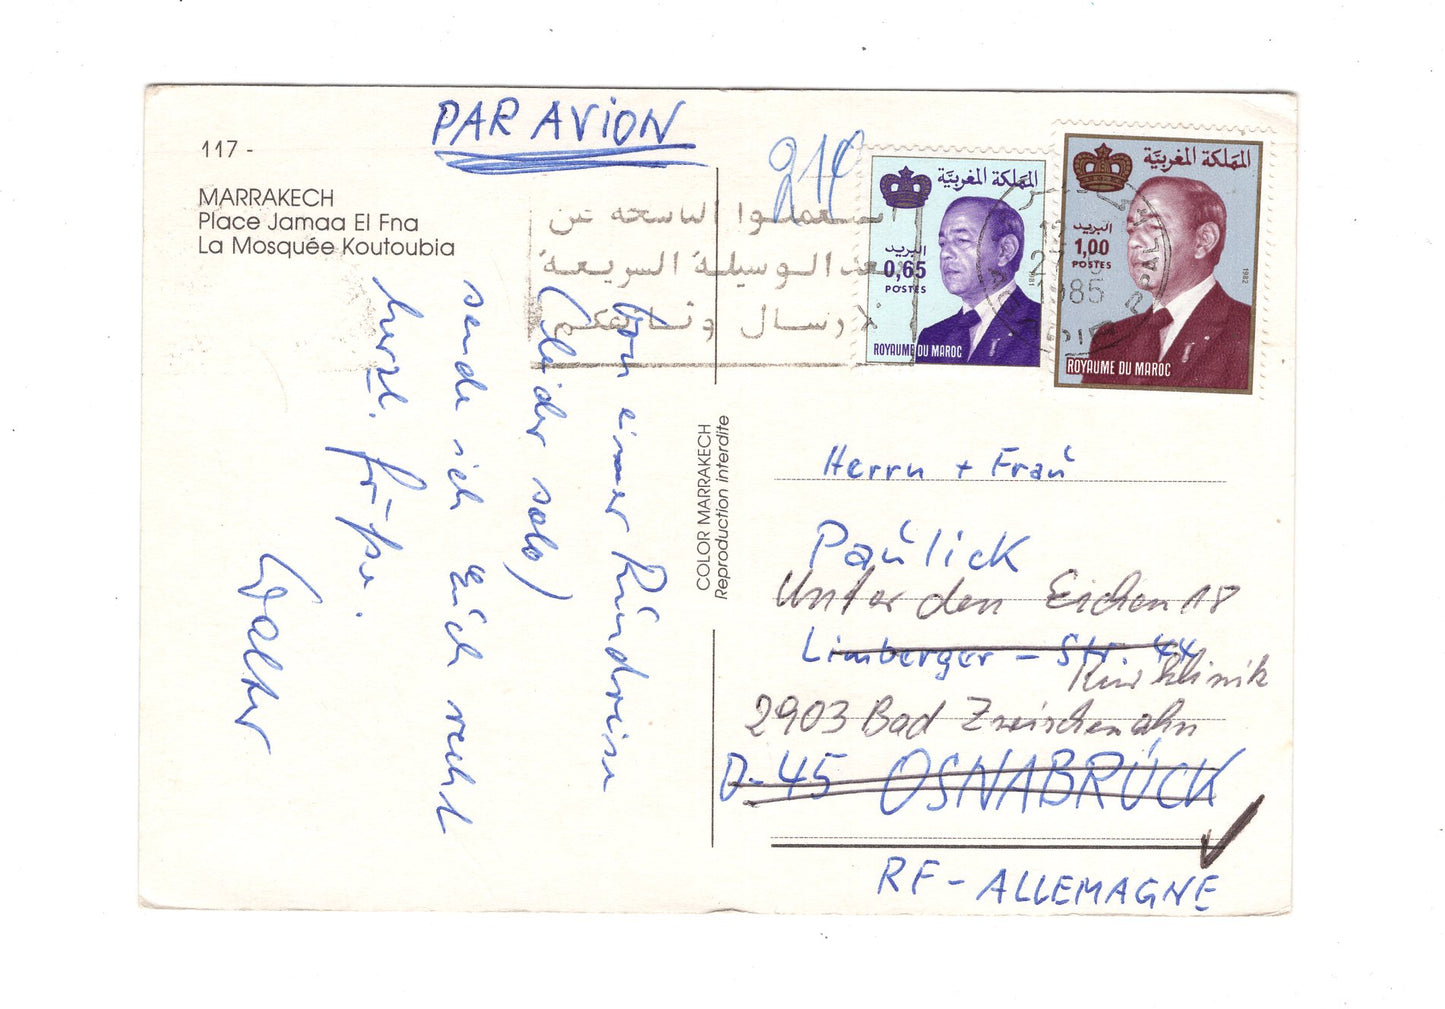 PAR AVION
117 -
MARRAKECH
Place Jamaa El Fna
La Mosquée Koutoubia
Von einer Rundreise
(leider solo)
sende ich Euch recht
herzl. Grüße.
Walter
COLOR MARRAKECH
Reproduction interdite
214
استعملوا الناسخة عن
بعد الوسيلة السريعة
لارسال وثائقكم
المملكة المغربية
البريد
0,65
POSTES
1981
ROYAUME DU MAROC
المملكة المغربية
البريد
1,00
POSTES
1982
ROYAUME DU MAROC
12
27
1985
Herrn + Frau
Paulick
Unter den Eichen 18
Limberger - Str. 44
Kurklinik
2903 Bad Zwischenahn
D-45 OSNABRÜCK
RF - ALLEMAGNE